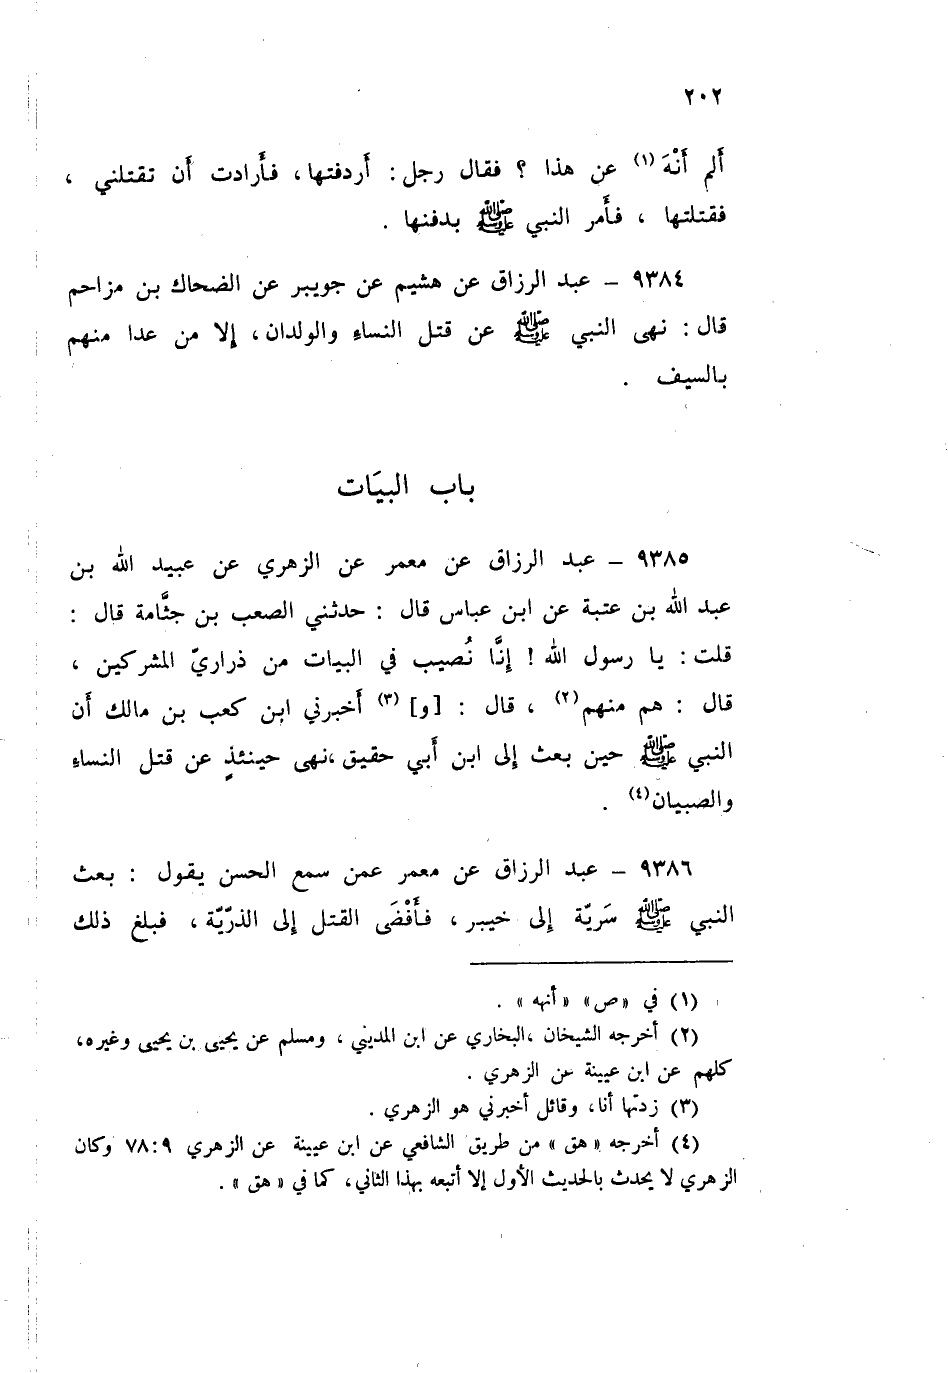 ٢٠٢
ألم أَنْهَ (١) عن هذا ؟ فقال رجل : أردفتها، فأَرادت أَن تقتلني ،
فقتلتها ، فأَمر النبي ﷺ بدفنها .
٩٣٨٤ – عبد الرزاق عن هشيم عن جويبر عن الضحاك بن مزاحم
قال : نهى النبي ﷺ عن قتل النساءِ والولدان، إلا من عدا منهم
بالسيف .
باب البيَات
٩٣٨٥ – عبد الرزاق عن معمر عن الزهري عن عبيد الله بن
عبد الله بن عتبة عن ابن عباس قال : حدثني الصعب بن جثَّامة قال :
قلت : يا رسول الله ! إِنَّا نُصيب في البيات من ذراريّ المشركين ،
قال : هم منهم (٢) ، قال : [و] (٣) أخبرني ابن كعب بن مالك أَن
النبي ﷺ حين بعث إلى ابن أَبي حقيق ،نهى حينئذٍ عن قتل النساءِ
والصبيان (٤) .
٩٣٨٦ – عبد الرزاق عن معمر عمن سمع الحسن يقول : بعث
النبي ﷺ سَريّة إلى خيبر ، فأَفْضَى القتل إلى الذرّيّة ، فبلغ ذلك
(١) في «ص» «أنهه» .
(٢) أخرجه الشيخان ،البخاري عن ابن المديني ، ومسلم عن يحيى بن يحيى وغيره،
كلهم عن ابن عيينة عن الزهري .
(٣) زدتها أنا، وقائل أخبرني هو الزهري .
(٤) أخرجه «هق» من طريق الشافعي عن ابن عيينة عن الزهري ٩ : ٧٨ وكان
الزهري لا يحدث بالحديث الأول إلا أتبعه بهذا الثاني، كما في «هق» .